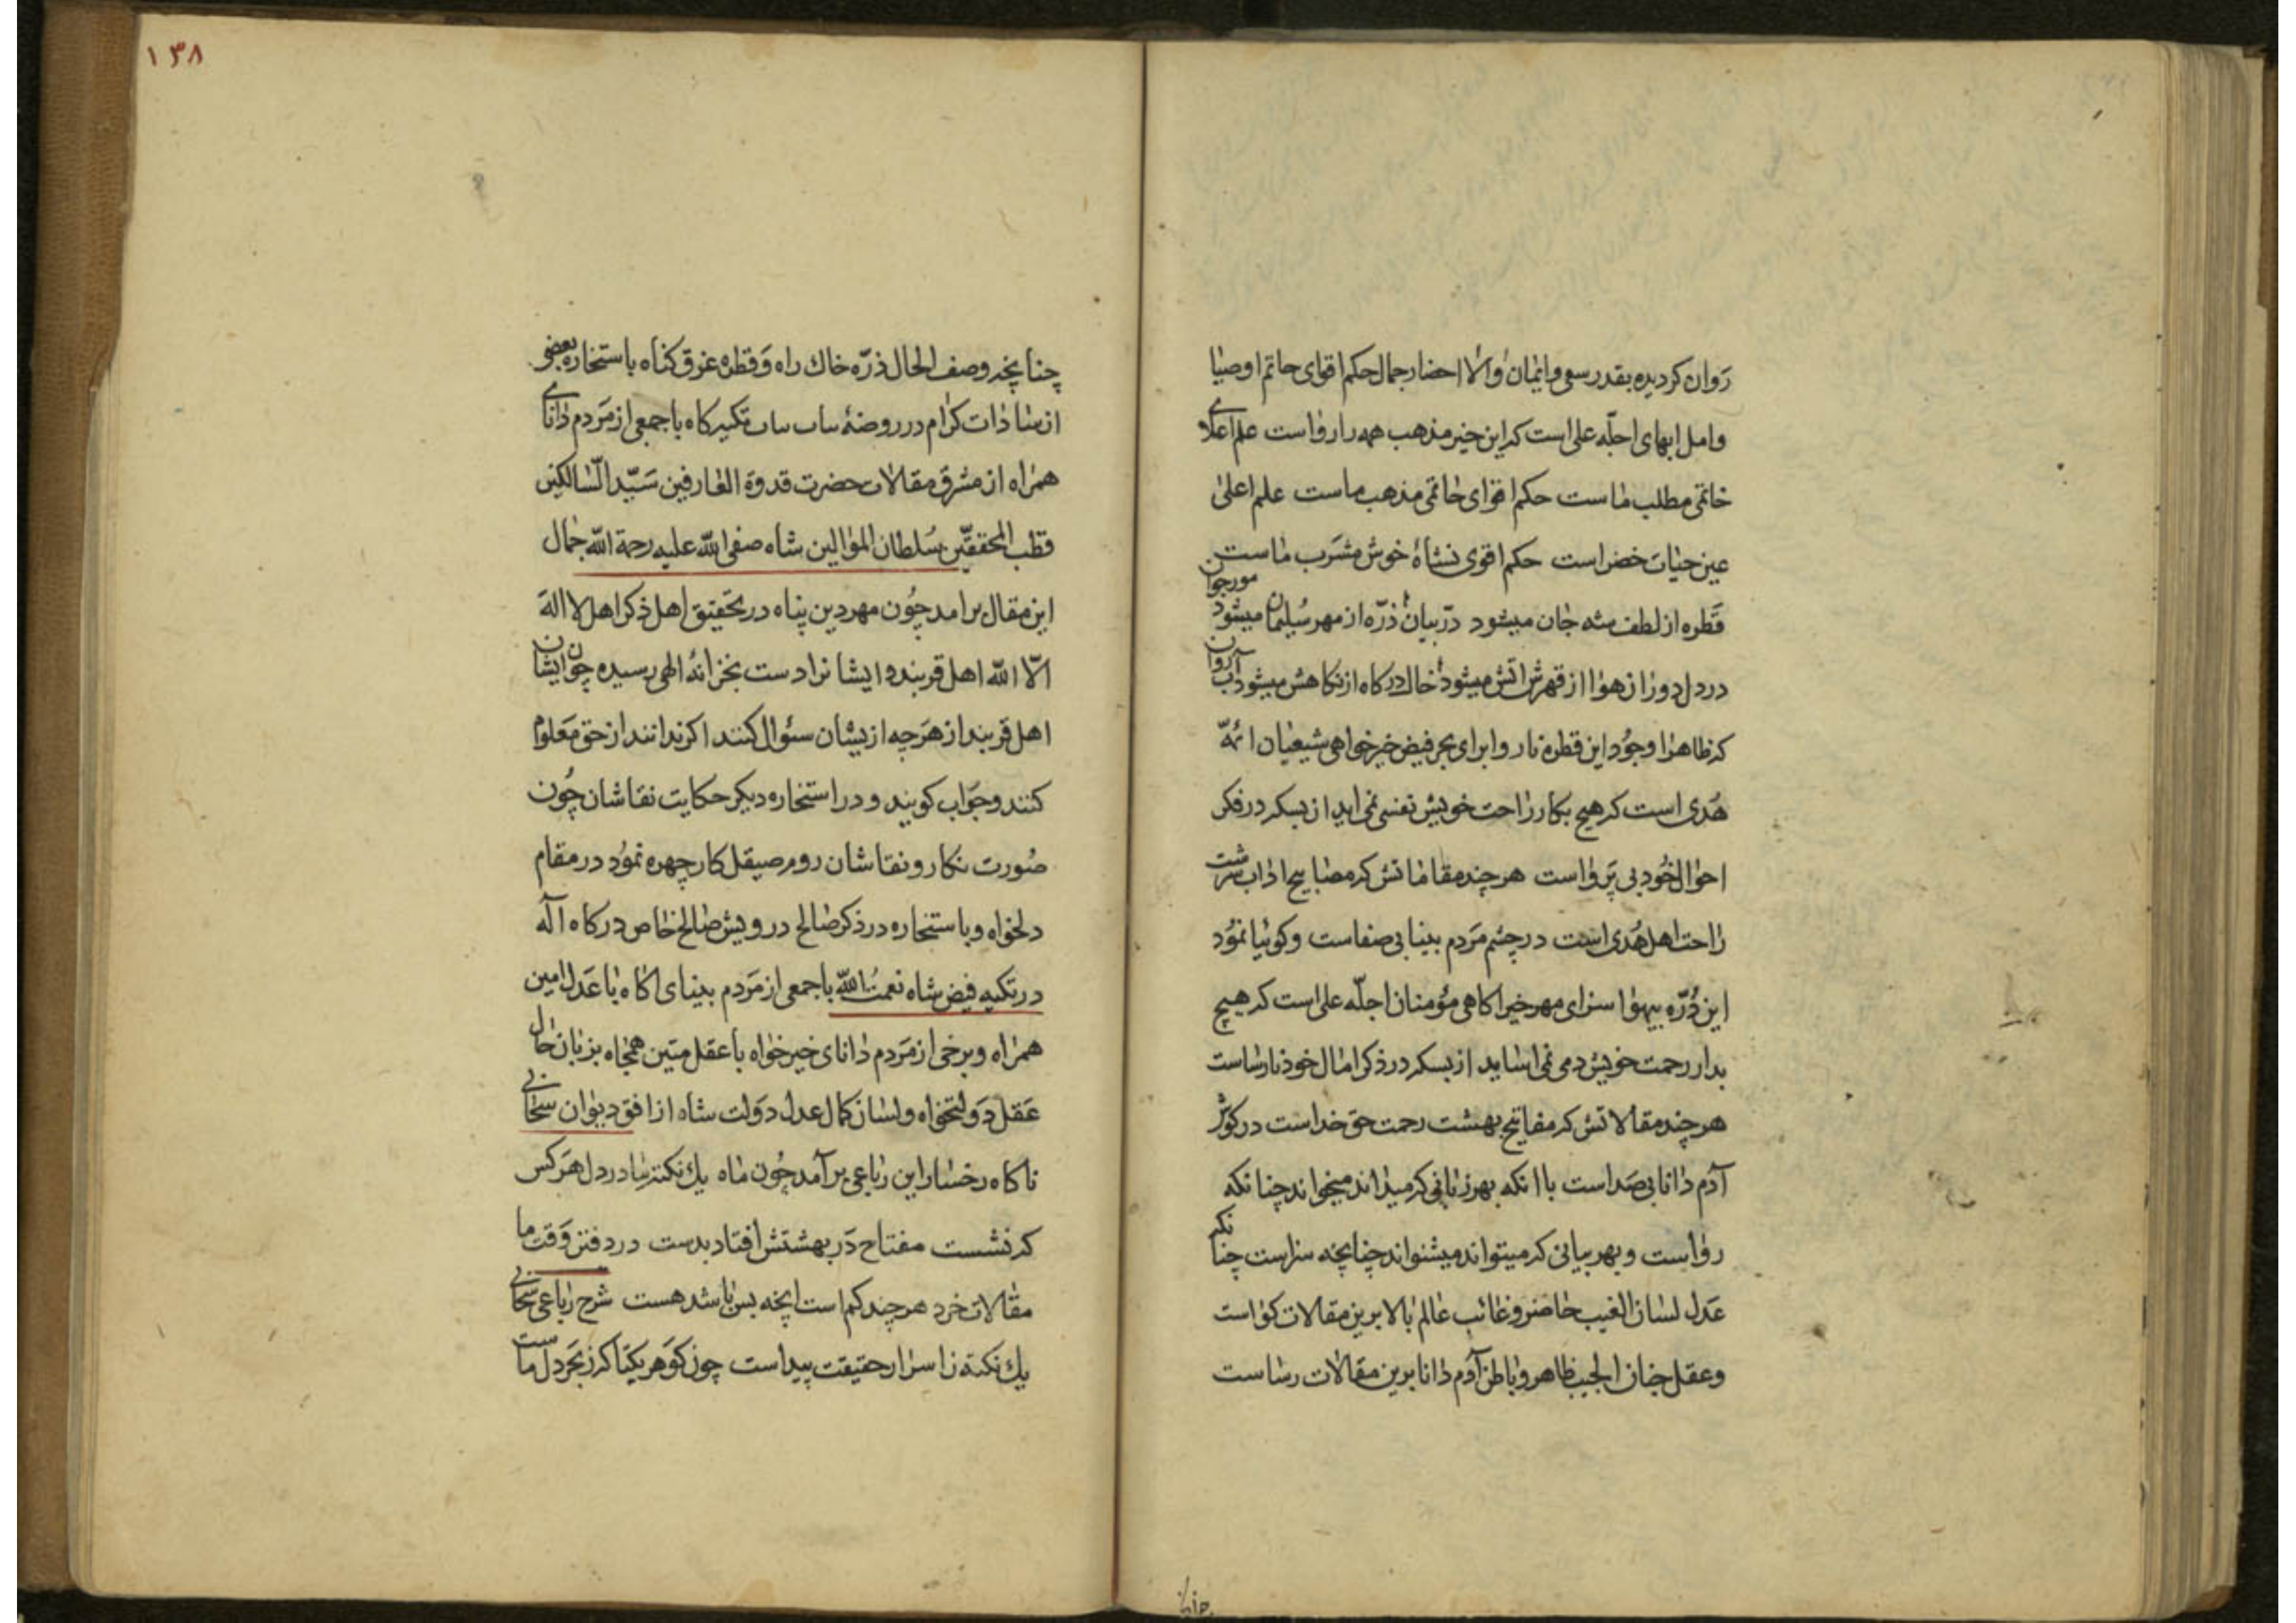 روان کردیده بقدر سعی و ایمان و الا احضار جمال حکم اقوای خاتم اوصیا
و امل ابهای اجلّه علی است که این خیر مذهب همه را رواست علم اعلای
خاتمی مطلب ماست حکم اقوای خاتمی مذهب ماست علم اعلی
عین حیات خضر است حکم اقوی نشاهٔ خوش مشرب ماست
قطره از لطف شه جان میشود در بیان ذرّه از مهر سلیمان میشود مور جوان
در دل دوران هوا از قهرش اتش میشود خاك درکاه از نکاهش میشود آب روان
که ظاهرا وجود این قطره ناروا برای بحر فیض خیرخواهی شیعیان ائمّه
هدی است که هیچ بکار راحت خویش نفسی نمی اید از بسکه در فکر
احوال خود بی پرواست هر چند مقاماتش که مصابیح اداب شریعت
راحت اهل هدی است در چشم مردم بینا بی صفاست و کوئیا نمود
این ذرّه بیهوا سزای مهر خیر اکاهی مؤمنان اجلّه علی است که هیچ
بدار رحمت خویش دمی نمی اساید از بسکه در ذکر امال خود نارساست
هر چند مقالاتش که مفاتیح بهشت رحمت حق خداست در کوش
آدم دانا بی صداست با انکه بهر زبانی که میداند میخواند چنانکه
رواست و بهر بیانی که میتواند میشنواند چنانچه سزاست چنانکه
عدل لسان الغیب حاضر و غائب عالم بالا برین مقالات کواست
و عقل جنان الجیب ظاهر و باطن آدم دانا برین مقالات رساست
۱۳۸
چنانچه وصف الحال ذرّه خاك راه و قطره غرق کناه باستخاره بعضی
از سادات کرام در روضهٔ تکیه کاه با جمعی از مردم دانای
همراه از مشرق مقالات حضرت قدوة العارفین سیّد السّالکین
قطب المحققین سلطان الموالین شاه صفی الله علیه رحمة الله جمال
این مقال برامد چون مهر دین پناه در تحقیق اهل ذکر اهل لا اله
الّا الله اهل قربند و ایشانرا دست بخزانهٔ الهی رسیده چون ایشان
اهل قربند از هرچه ازیشان سئوال کنند اکر ندانند از حق معلوم
کنند و جواب کویند و در استخاره دیکر حکایت نقاشان چون
صورت نکار و نقاشان روم صیقل کار چهره نمود در مقام
دلخواه و باستخاره در ذکر صالح درویش صالح خاص درکاه اله
در تکیه فیض شاه نعمت الله با جمعی از مردم بینای اکاه با عدل امین
همراه و برخی از مردم دانای خیرخواه با عقل متین همجاه بزبان حال
عقل دولتخواه و لسان کمال عدل دولت شاه از افق دیوان سحابی
ناکاه رخسار این رباعی برآمد چون ماه یك نکته ما در دل هر کس
که نشست مفتاح در بهشتش افتاد بدست در دفتر وقت ما
مقالات خرد هر چند کم است انچه بس باشد هست شرح رباعی سحابی
یك نکته ز اسرار حقیقت پیداست چون کوهر یکتا که ز بحر دل ماست